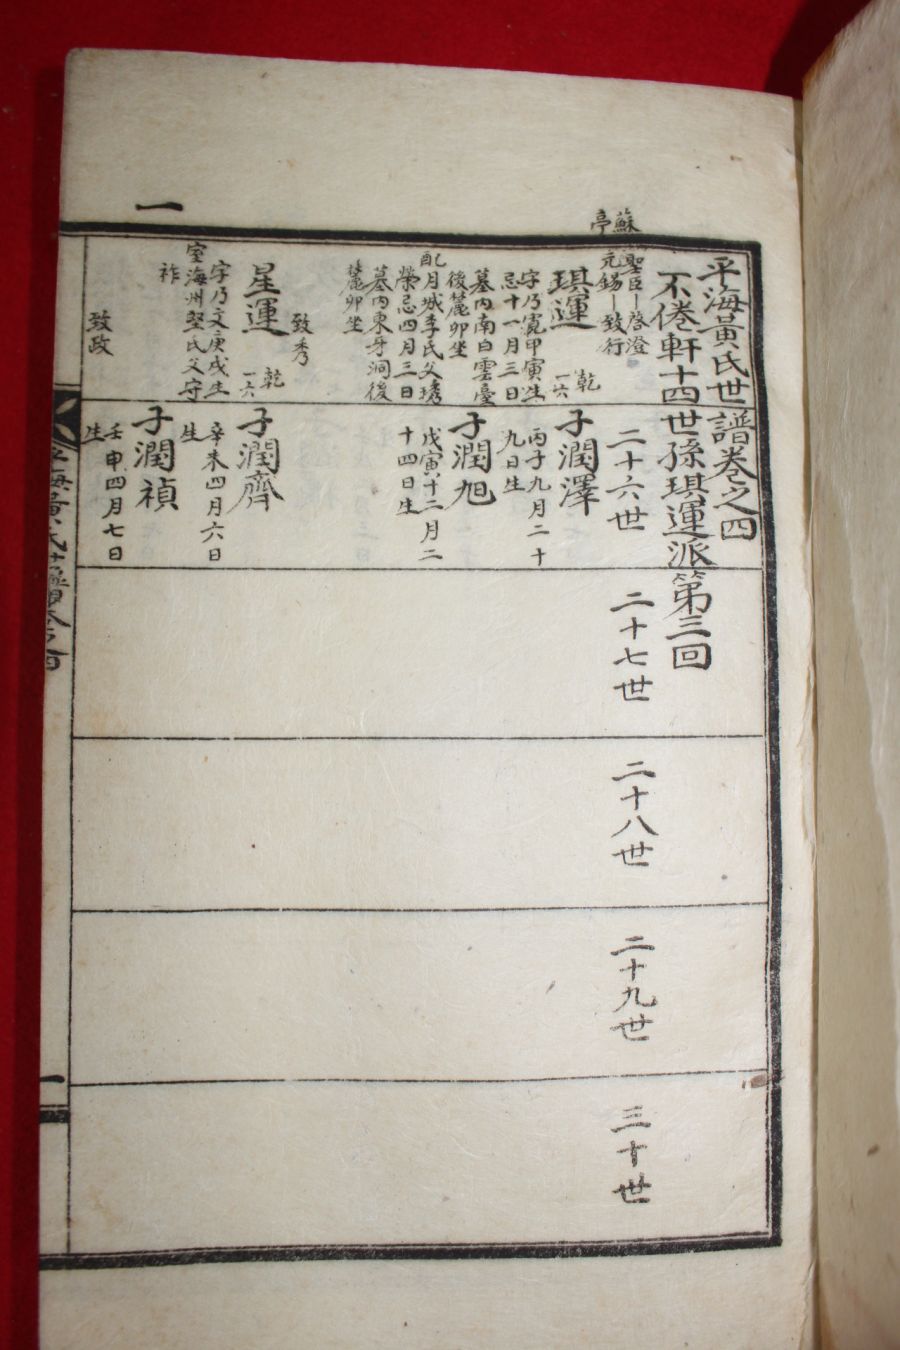 平海黃氏世譜卷之四
不倦軒十四世孫琪運派第三回
蘇亭
聖臣ー啓澄
元錫ー致行
二十六世
二十七世
二十八世
二十九世
三十世
琪運
乾一六
字乃寛甲寅生
忌十一月三日
墓內南白雲臺
後麓卯坐
配月城李氏父琇
榮忌四月三日
墓內東牙洞後
麓卯坐
致秀
星運
乾一六
字乃文庚戌生
室海州堅氏父守
祚
致政
子潤澤
丙子九月二十
九日生
子潤旭
戊寅十二月二
十四日生
子潤齊
辛未四月六日
生
子潤禎
壬申四月七日
生
一
平海黃氏世譜卷之四
一